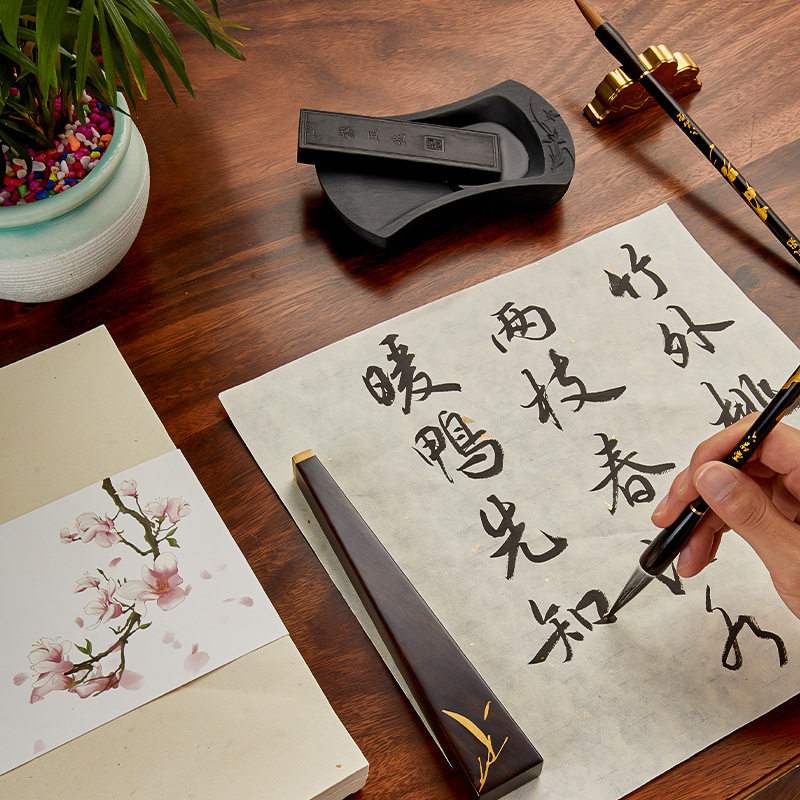 竹外桃
两枝春江水
暖鸭先知